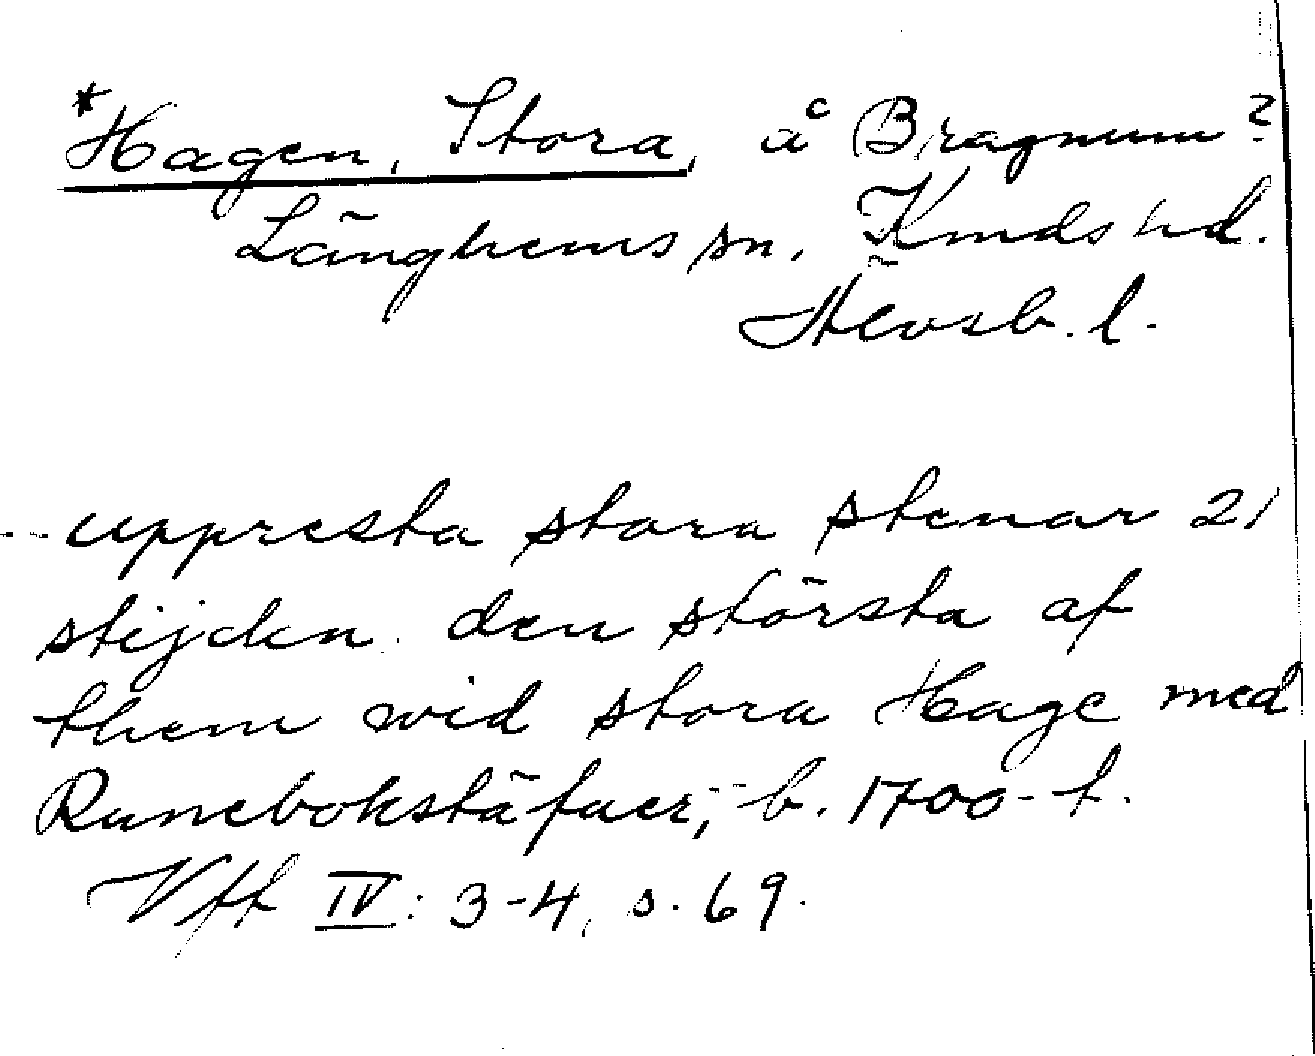 *Hagen, Stora, å Bragnum?
Länghems sn, Kinds hd.
Älvsb. l.
--- uppresta stora stenar 21
stijcken. den största af
them wid stora Hage med
Runebokstäfuer; -- b. 1700-t.
Vftt IV: 3-4, s. 69.